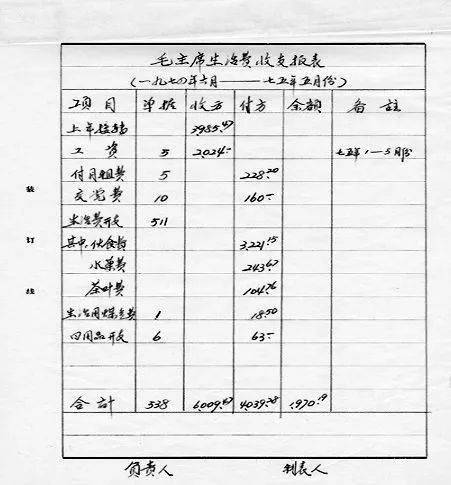 毛主席生活费收支报表
(一九七四年六月——七五年五月份)
项目 单据 收方 付方 余额 备註
上年结转 3985.67
工资 5 2,024.- 七五年1—5月份
付月租费 5 228.20
交党费 10 160.-
生活费开支 511
其中:伙食费 3,221.15
水菓费 243.67
茶叶费 104.76
生活用煤气费 1 18.50
日用品开支 6 63.-
合计 538 6,009.67 4,039.28
负责人 制表人
装订线